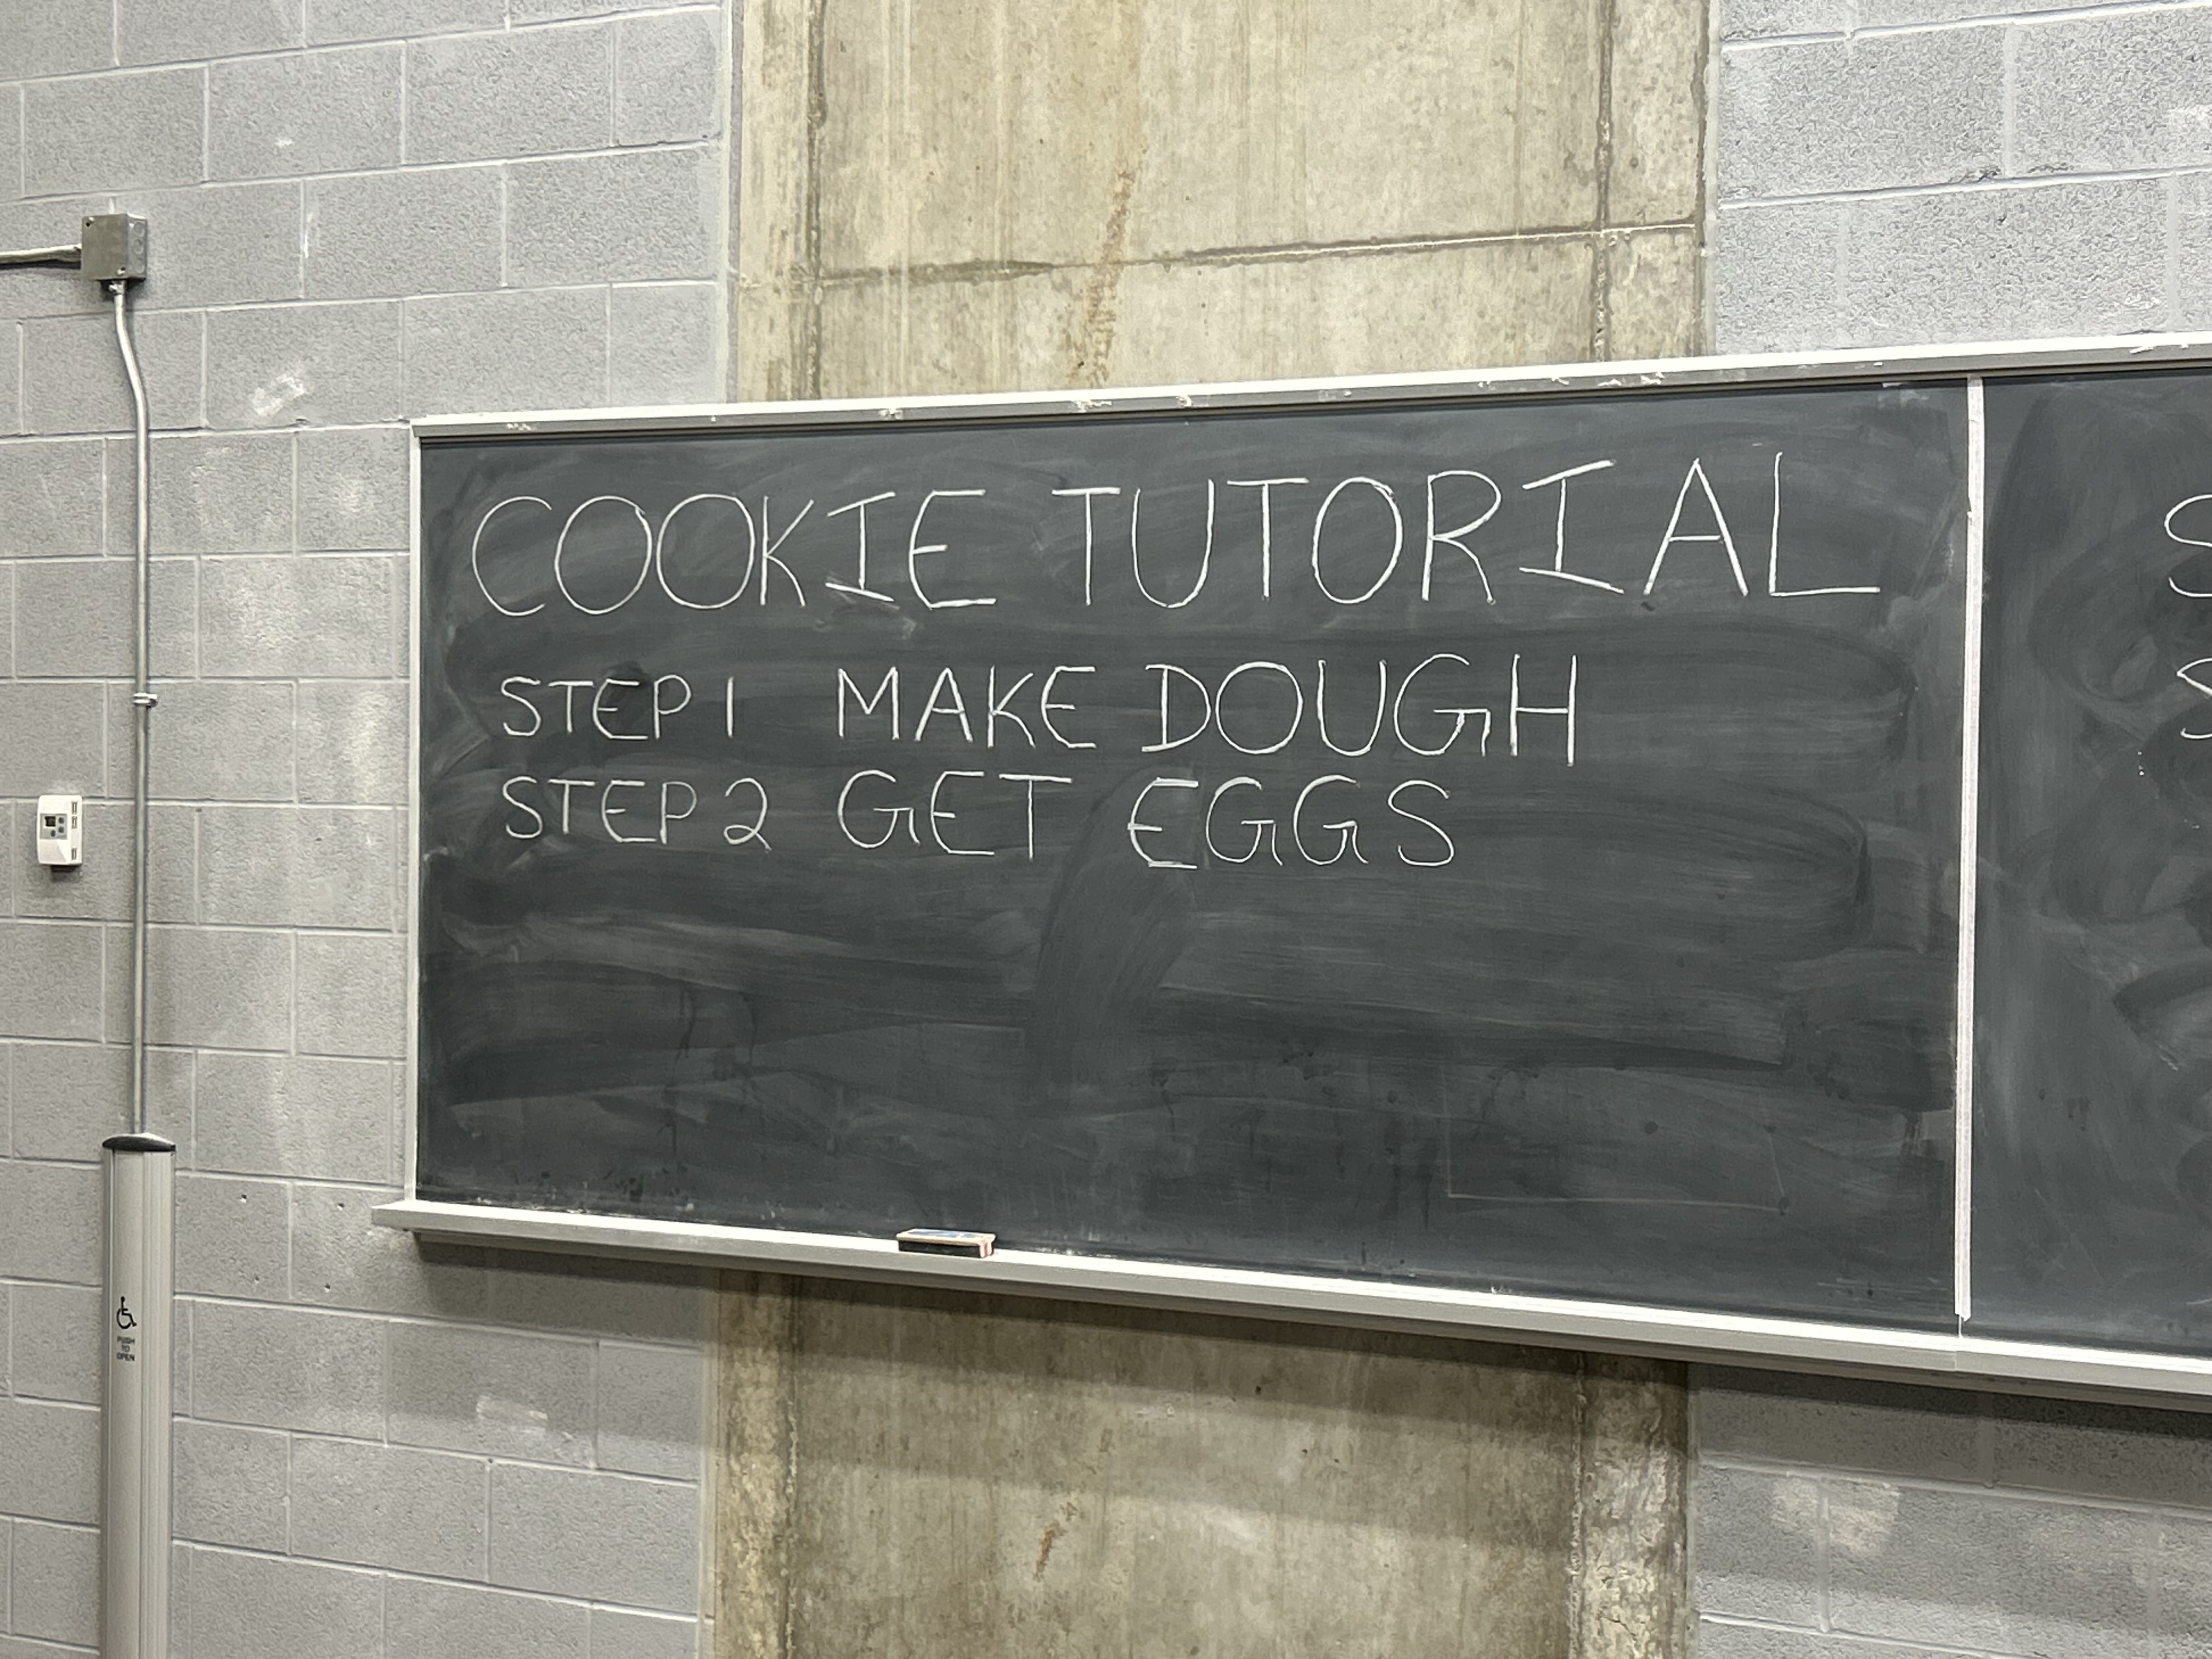 COOKIE TUTORIAL
STEP 1 MAKE DOUGH
STEP 2 GET EGGS
PUSH
TO
OPEN